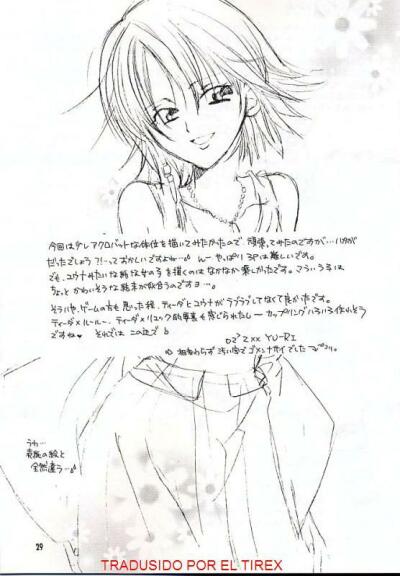 今回はテレアクロバットな体位を描いてみたかったので、頑張ってみたのですが…いかが
だったでしょう?!…っておかしいですよね…♪ んー やっぱり3Pは難しいです。
でも、ユウナみたいな純な女の子を描くのはなかなか楽しかったです。こういう子は
ちょっとかわいそうな結末が似合うのですヨ…。
そういや、ゲームの方も思った程、ティーダとユウナがラブラブしてなくて良かったです。
ティーダ×ルールー、ティーダ×リュック的要素も感じられたし〜 カップリングいろいろ作れそう
ですね♥ それでは この辺で♪
YU-RI
相変わらず 汚い字で ゴメンナサイ でした
うわ…
表紙の絵と
全然違う…♪
29
TRADUSIDO POR EL TIREX